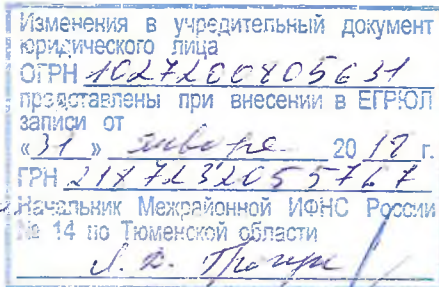 Изменения в учредительный документ
юридического лица
ОГРН 1027200805631
представлены при внесении в ЕГРЮЛ
записи от
«31» января 2018 г.
ГРН 2187232055767
Начальник Межрайонной ИФНС России
№ 14 по Тюменской области